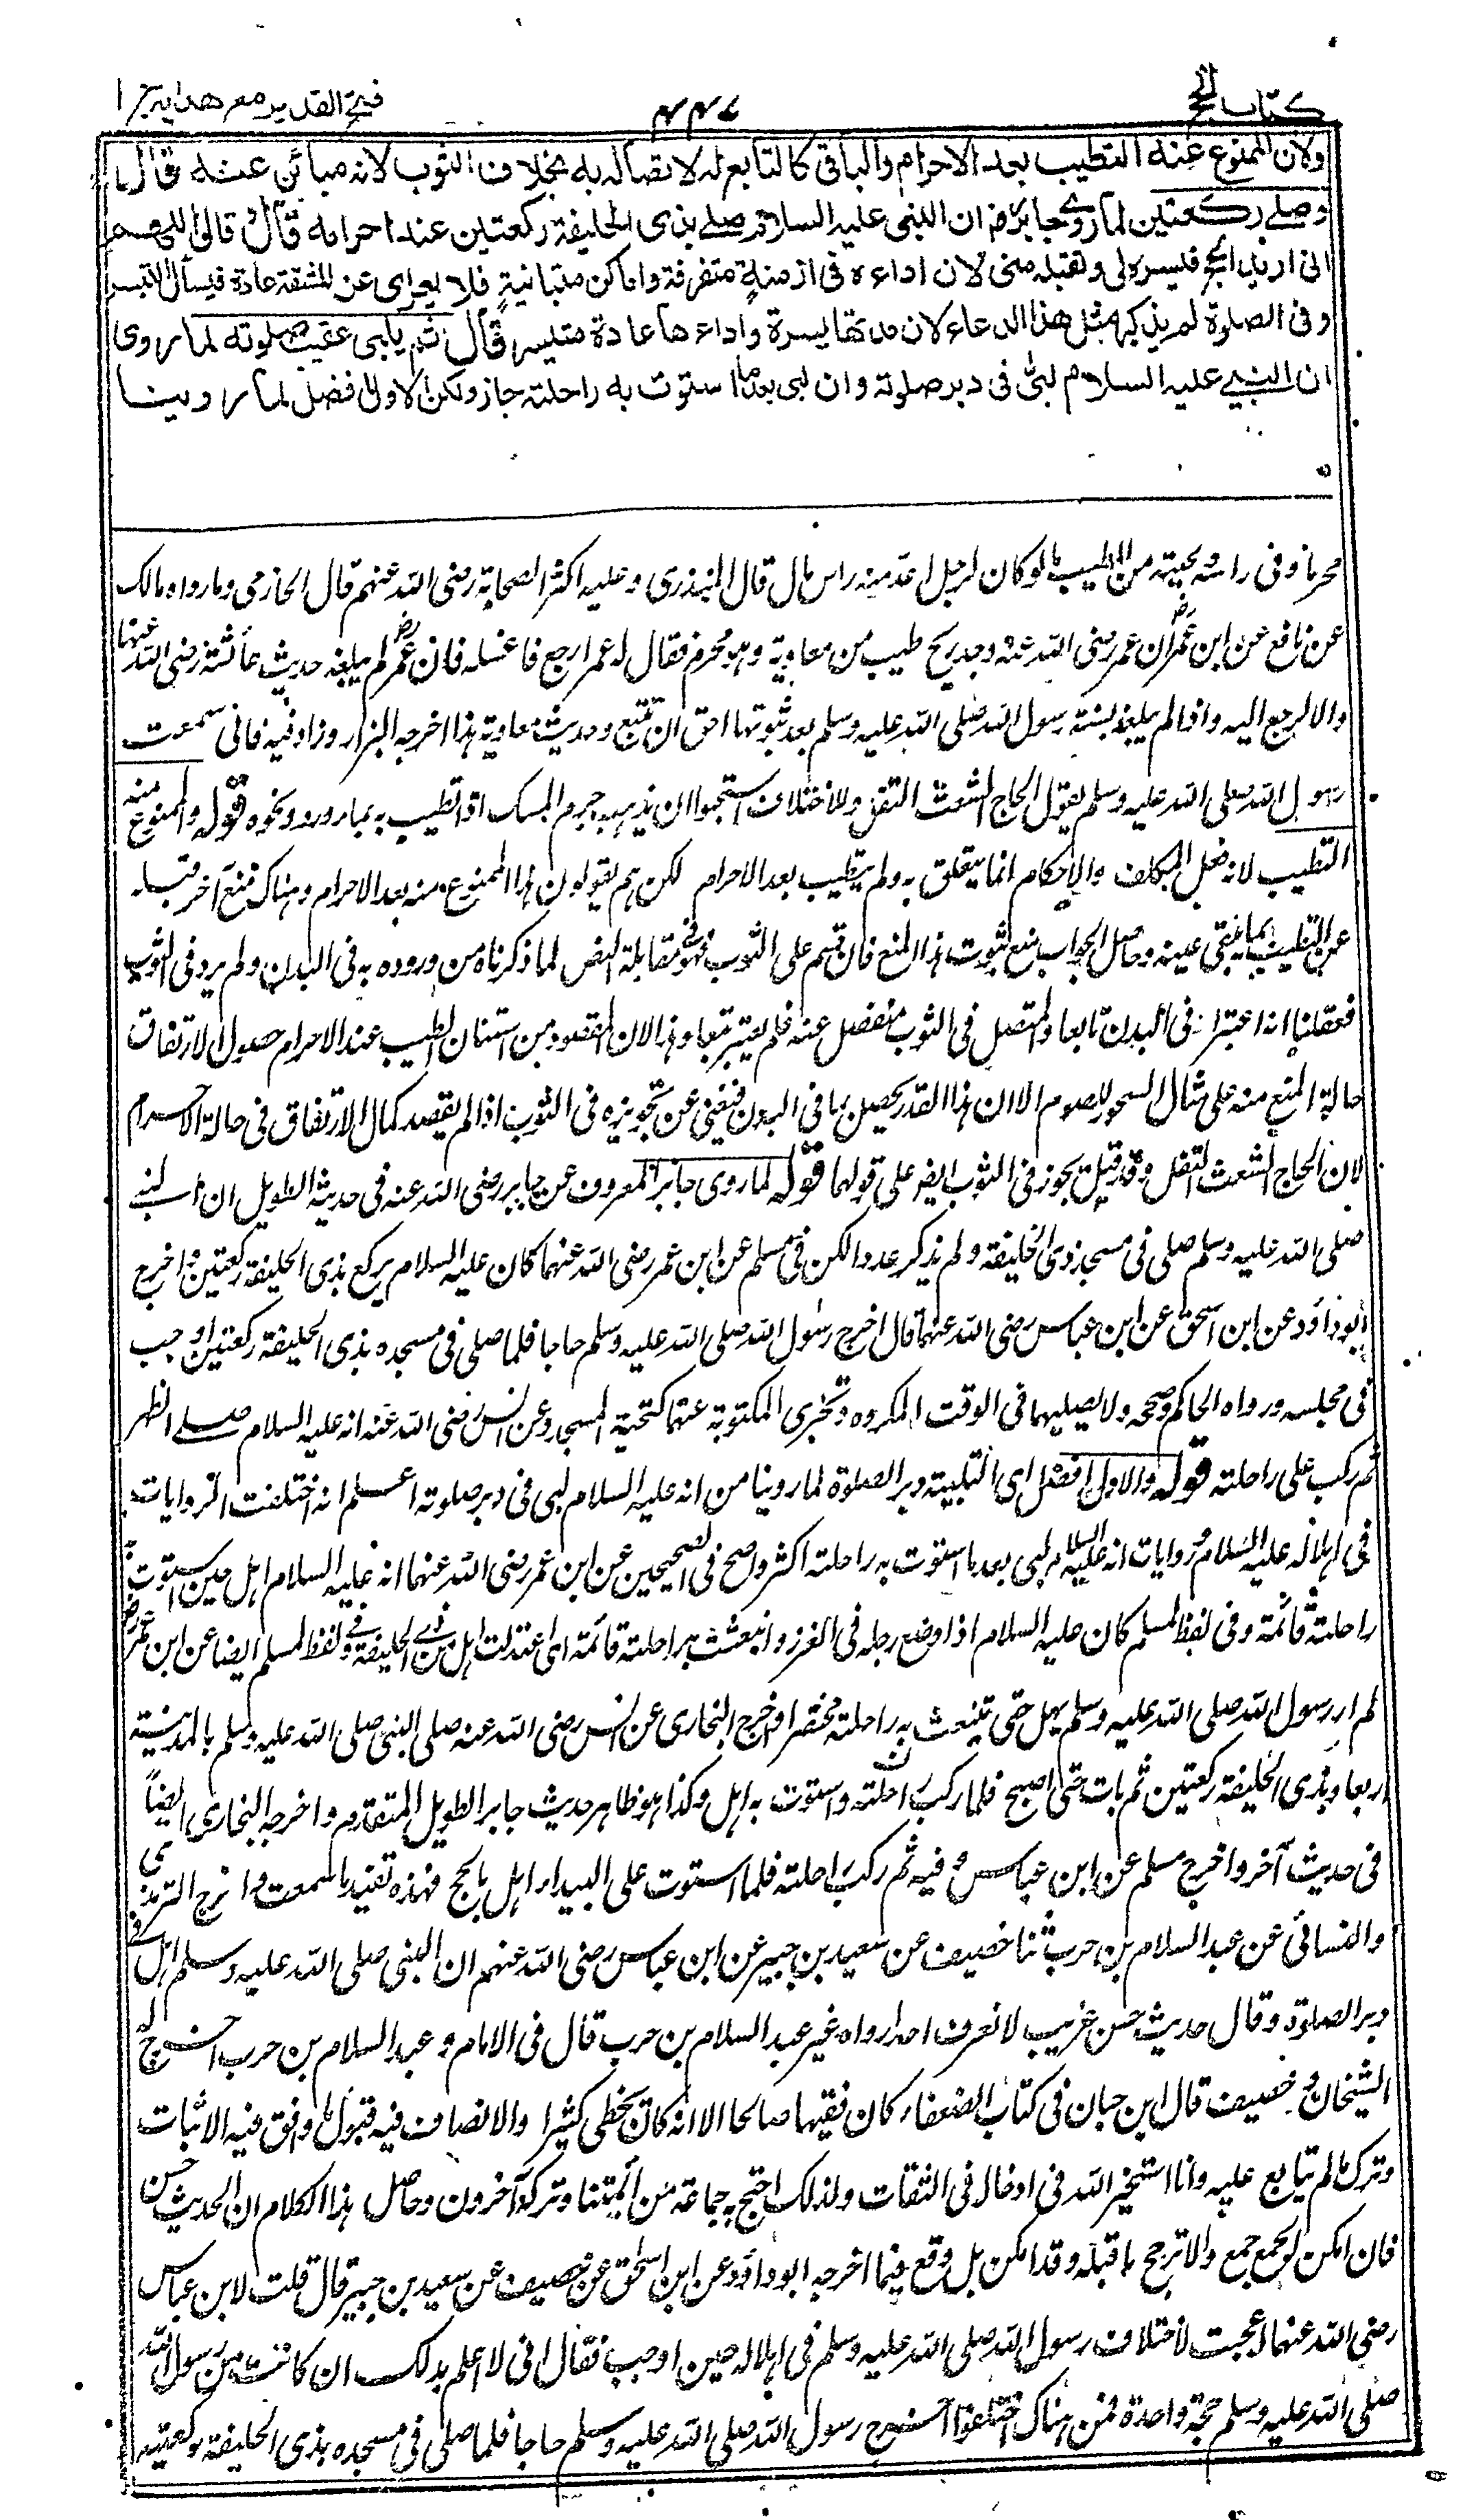 كتاب الحج
۳۳۷
فتح القدير مع هدايه ج ا
ولان الممنوع عنه التطيب بعد الاحرام والباقى كالتابع له لاتصاله به بخلاف الثوب لانه مبائن عنه قال
وصلے ركعتين لما روى جابر رض ان النبى عليه السلام صلے بذى الحليفة ركعتين عند احرامه قال وقال اللهم
انى اريد الحج فيسره لى وتقبله منى لان اداءه فى ازمنة متفرقة واماكن متبانية فلا يعرى عن المشقة عادة فيسأل التيسير
وفى الصلوة لم يذكر مثل هذا الدعاء لان مدتها يسيرة واداءها عادة متيسر قال ثم يلبى عقيب صلوته لما روى
ان النبي عليه السلام لبى فى دبر صلوته وان لبى بعد ما استوت به راحلته جاز ولكن الاول افضل لما روينا
محرما وفى راسه ولحيته من الطيب ما لو كان لرجل اعد منه راس مال قال المنذرى وعليه اكثر الصحابة رضى الله عنهم قال الحازمى وما رواه مالك
عن نافع عن ابن عمر ان عمر رضى الله عنه وجد ريح طيب من معاوية وهو محرم فقال له عمر ارجع فاغسله فان عمر رض لم يبلغه حديث عائشة رضى الله عنها
والا لرجع اليه واذا لم يبلغه فسنة رسول الله صلى الله عليه وسلم بعد ثبوتها احق ان تتبع وحديث معاوية هذا اخرجه البزار وزاد فيه فانى سمعت
رسول الله صلى الله عليه وسلم يقول الحاج الشعث التفل وللاختلاف استحبوا ان يذهب جرم المسك اذا تطيب به بماء ورد ونحوه قوله والممنوع منه
التطيب لانه فعل المكلف والاحكام انما يتعلق به ولم يتطيب بعد الاحرام لكن هم يقولون هذا الممنوع منه بعد الاحرام وهناك منع آخر قبله
عن التطيب بما يبقى عينه وحاصل الجواب منع ثبوت هذا المنع فان قيس على الثوب فهو فى مقابلة النص لما ذكرناه من وروده به فى البدن ولم يرد فى الثوب
فعقلنا انه اعتبر فى البدن تابعا والمتصل فى الثوب منفصل عنه فلم يعتبر تبعا وهذا لان المقصود من استنان الطيب عند الاحرام حصول الارتفاق
حالة المنع منه على مثال السحور للصوم الا ان هذا القدر يحصل بما فى البدن فيغنى عن تجويزه فى الثوب اذا لم يقصد كمال الارتفاق فى حالة الاحرام
لان الحاج الشعث التفل وقد قيل يجوز فى الثوب ايضا على قولهما قوله لما روى جابر المعروف عن جابر رضى الله عنه فى حديثه الطويل ان النبي
صلى الله عليه وسلم صلى فى مسجد ذى الحليفة ولم يذكر عددا لكن فى مسلم عن ابن عمر رضى الله عنهما كان عليه السلام يركع بذى الحليفة ركعتين واخرج
ابو داود عن ابن اسحق عن ابن عباس رضى الله عنهما قال خرج رسول الله صلى الله عليه وسلم حاجا فلما صلى فى مسجده بذى الحليفة ركعتين اوجب
فى مجلسه ورواه الحاكم وصححه ولا يصليهما فى الوقت المكروه وتجزى المكتوبة عنهما كتحية المسجد وعن انس رضى الله عنه انه عليه السلام صلے الظهر
ثم ركب على راحلته قوله والاول افضل اى التلبية دبر الصلوة لما روينا من انه عليه السلام لبى فى دبر صلوته اعلم انه اختلفت الروايات
فى اهلاله عليه السلام وروايات انه عليه السلام لبى بعد ما استوت به راحلته اكثر واصح فى الصحيحين عن ابن عمر رضى الله عنهما انه عليه السلام اهل حين استوت به
راحلته قائمة وفى لفظ لمسلم كان عليه السلام اذا وضع رجله فى الغرز وانبعثت به راحلته قائمة اى اعتدلت اهل من ذى الحليفة وفى لفظ لمسلم ايضا عن ابن عمر رض
لم ار رسول الله صلى الله عليه وسلم يهل حتى تنبعث به راحلته مختصرا واخرج البخارى عن انس رضى الله عنه صلى النبى صلى الله عليه وسلم بالمدينة
اربعا وبذى الحليفة ركعتين ثم بات حتى اصبح فلما ركب راحلته واستوت به اهل وكذا هو ظاهر حديث جابر الطويل المتقدم واخرجه البخارى ايضاً
فى حديث آخر واخرج مسلم عن ابن عباس وفيه ثم ركب راحلته فلما استوت على البيداء اهل بالحج فهذه تفيد ما سمعت واخرج الترمذى
والنسائى عن عبد السلام بن حرب ثنا خصيف عن سعيد بن جبير عن ابن عباس رضى الله عنهم ان النبى صلى الله عليه وسلم اهل فى
دبر الصلوة وقال حديث حسن غريب لا نعرف احدا رواه غير عبد السلام بن حرب قال فى الامام وعبد السلام بن حرب اخرج له
الشيخان وخصيف قال ابن حبان فى كتاب الضعفاء كان فقيها صالحا الا انه كان يخطى كثيرا والانصاف فيه قبول ما وافق فيه الاثبات
وترك ما لم يتابع عليه وانا استخير الله فى ادخاله فى الثقات ولذلك احتج به جماعة من ائمتنا وتركه آخرون وحاصل هذا الكلام ان الحديث حسن
فان امكن الجمع جمع والا ترجح ما قبله وقد امكن بل وقع فيما اخرجه ابو داؤد عن ابن اسحق عن خصيف عن سعيد بن جبير قال قلت لابن عباس
رضى الله عنهما عجبت لاختلاف رسول الله صلى الله عليه وسلم فى اهلاله حين اوجب فقال انى لاعلم بذلك ان كانت من رسول الله
صلى الله عليه وسلم حجة واحدة فمن هناك اختلفوا اخرج رسول الله صلى الله عليه وسلم حاجا فلما صلى فى مسجده بذى الحليفة ركعتيه